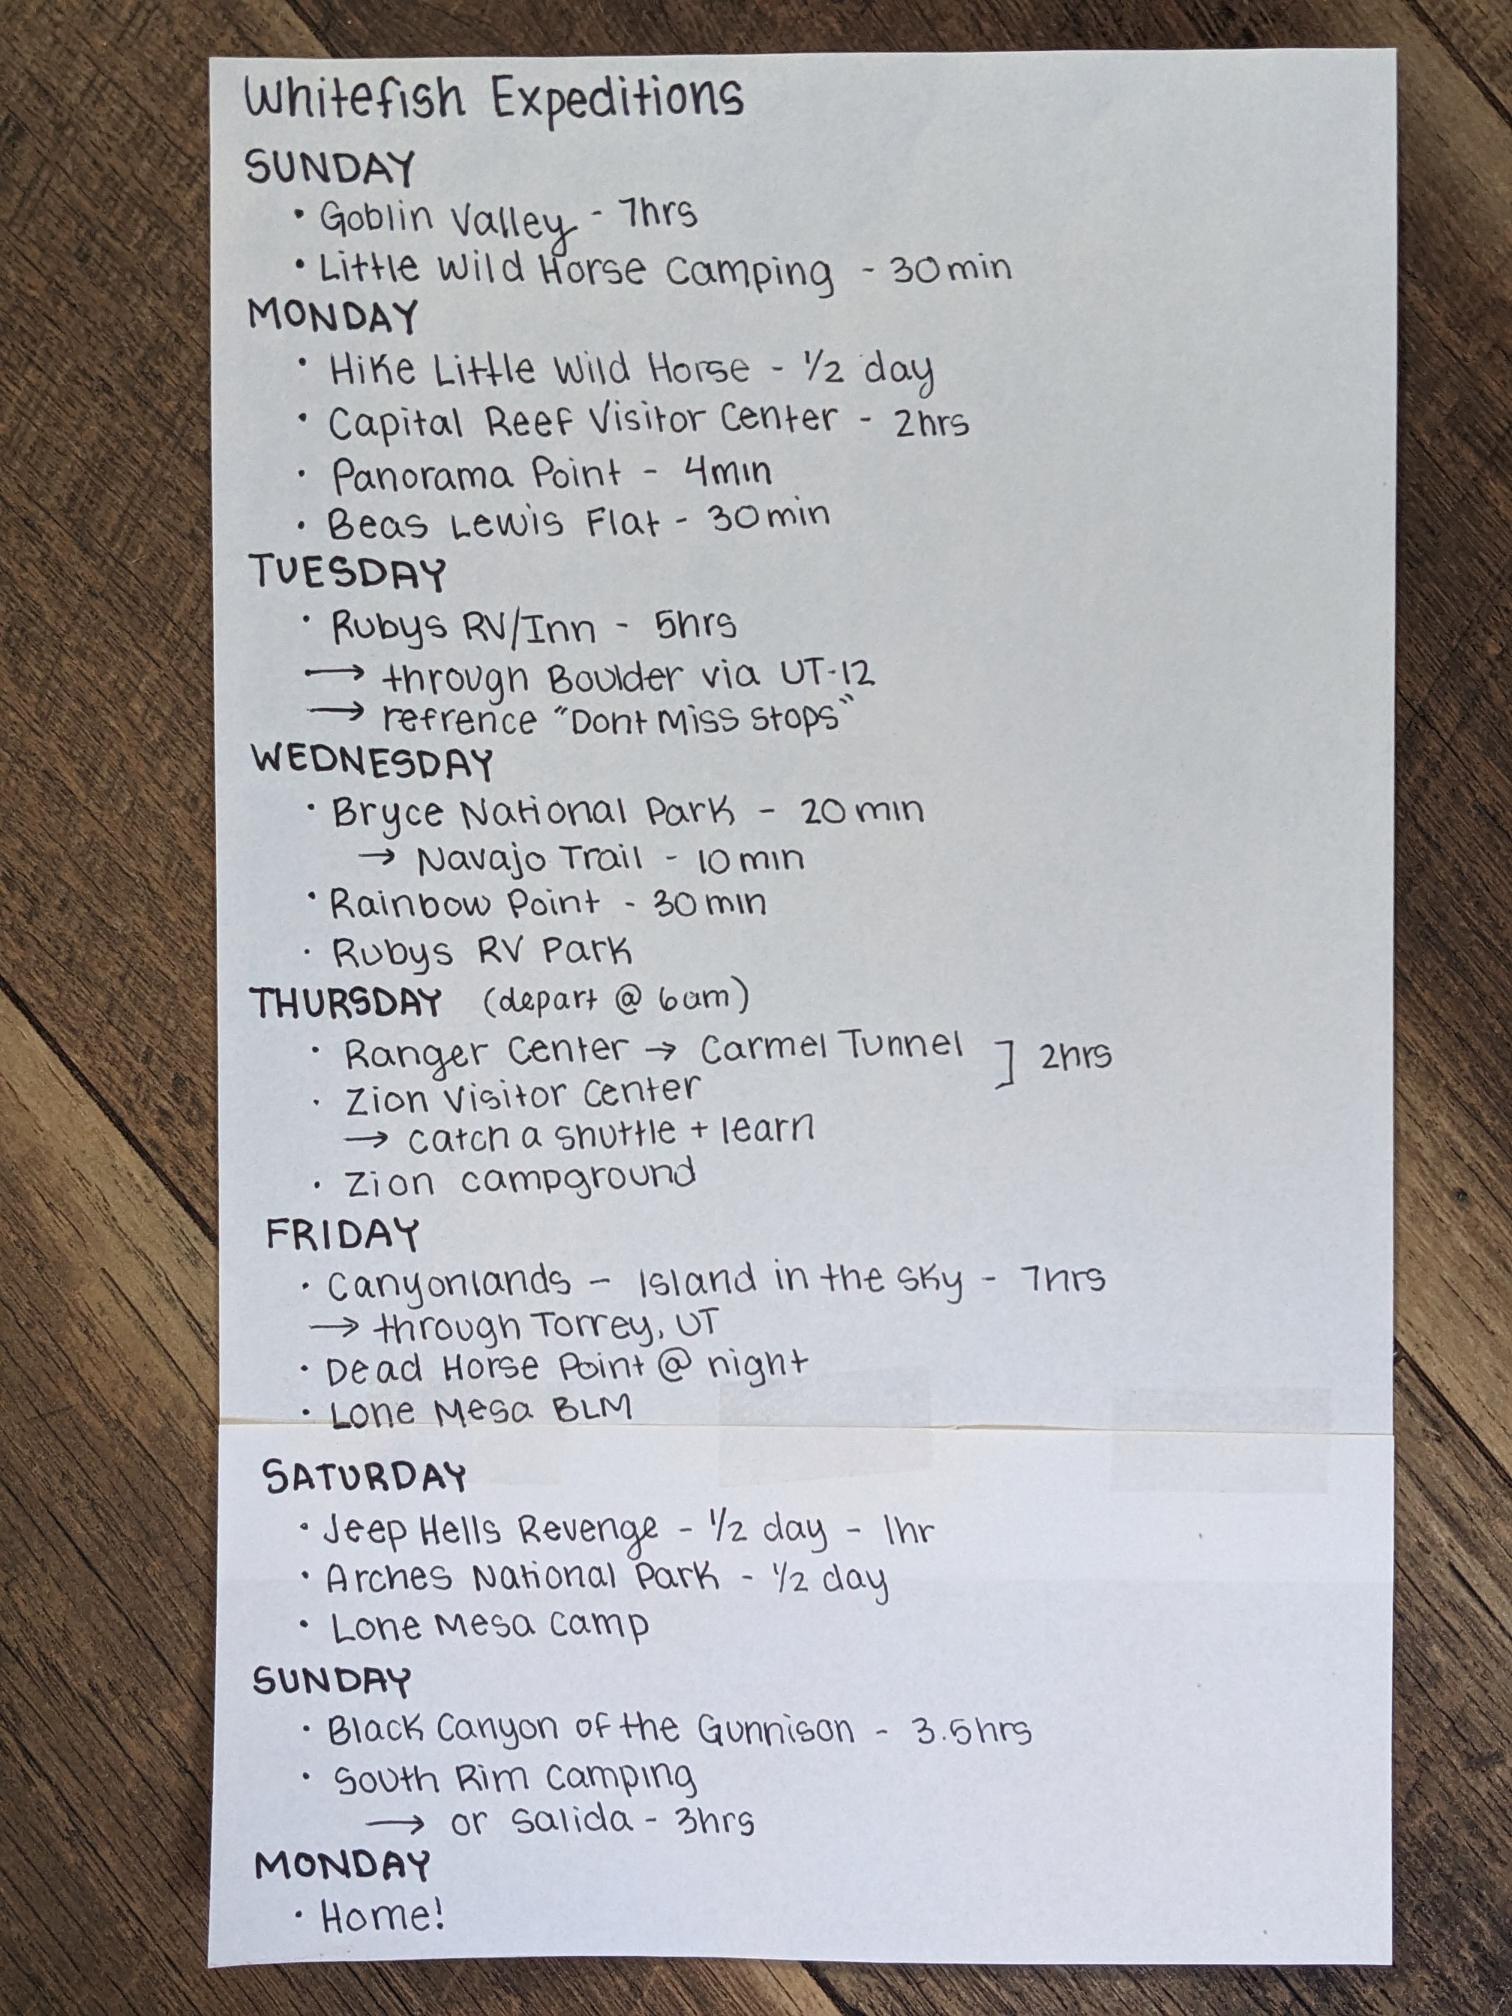 Whitefish Expeditions
SUNDAY
• Goblin Valley - 7hrs
• Little Wild Horse Camping - 30min
MONDAY
• Hike Little Wild Horse - 1/2 day
• Capital Reef Visitor Center - 2hrs
• Panorama Point - 4min
• Beas Lewis Flat - 30min
TUESDAY
• Rubys RV/Inn - 5hrs
→ through Boulder via UT-12
→ refrence "Dont Miss Stops"
WEDNESDAY
• Bryce National Park - 20min
→ Navajo Trail - 10min
• Rainbow Point - 30min
• Rubys RV Park
THURSDAY (depart @ 6am)
• Ranger Center → Carmel Tunnel ] 2hrs
• Zion Visitor Center
→ catch a shuttle + learn
• Zion campground
FRIDAY
• Canyonlands - Island in the Sky - 7hrs
→ through Torrey, UT
• Dead Horse Point @ night
• Lone Mesa BLM
SATURDAY
• Jeep Hells Revenge - 1/2 day - 1hr
• Arches National Park - 1/2 day
• Lone Mesa Camp
SUNDAY
• Black Canyon of the Gunnison - 3.5hrs
• South Rim Camping
→ or Salida - 3hrs
MONDAY
• Home!